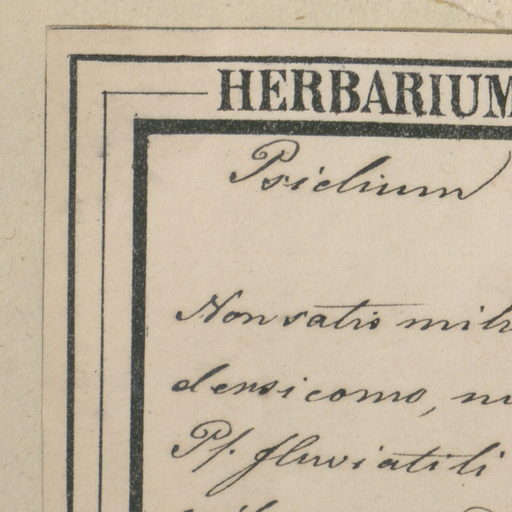 HERBARIUM
Psidium
Non satis mih
densicomo,
Ps. fluviatili